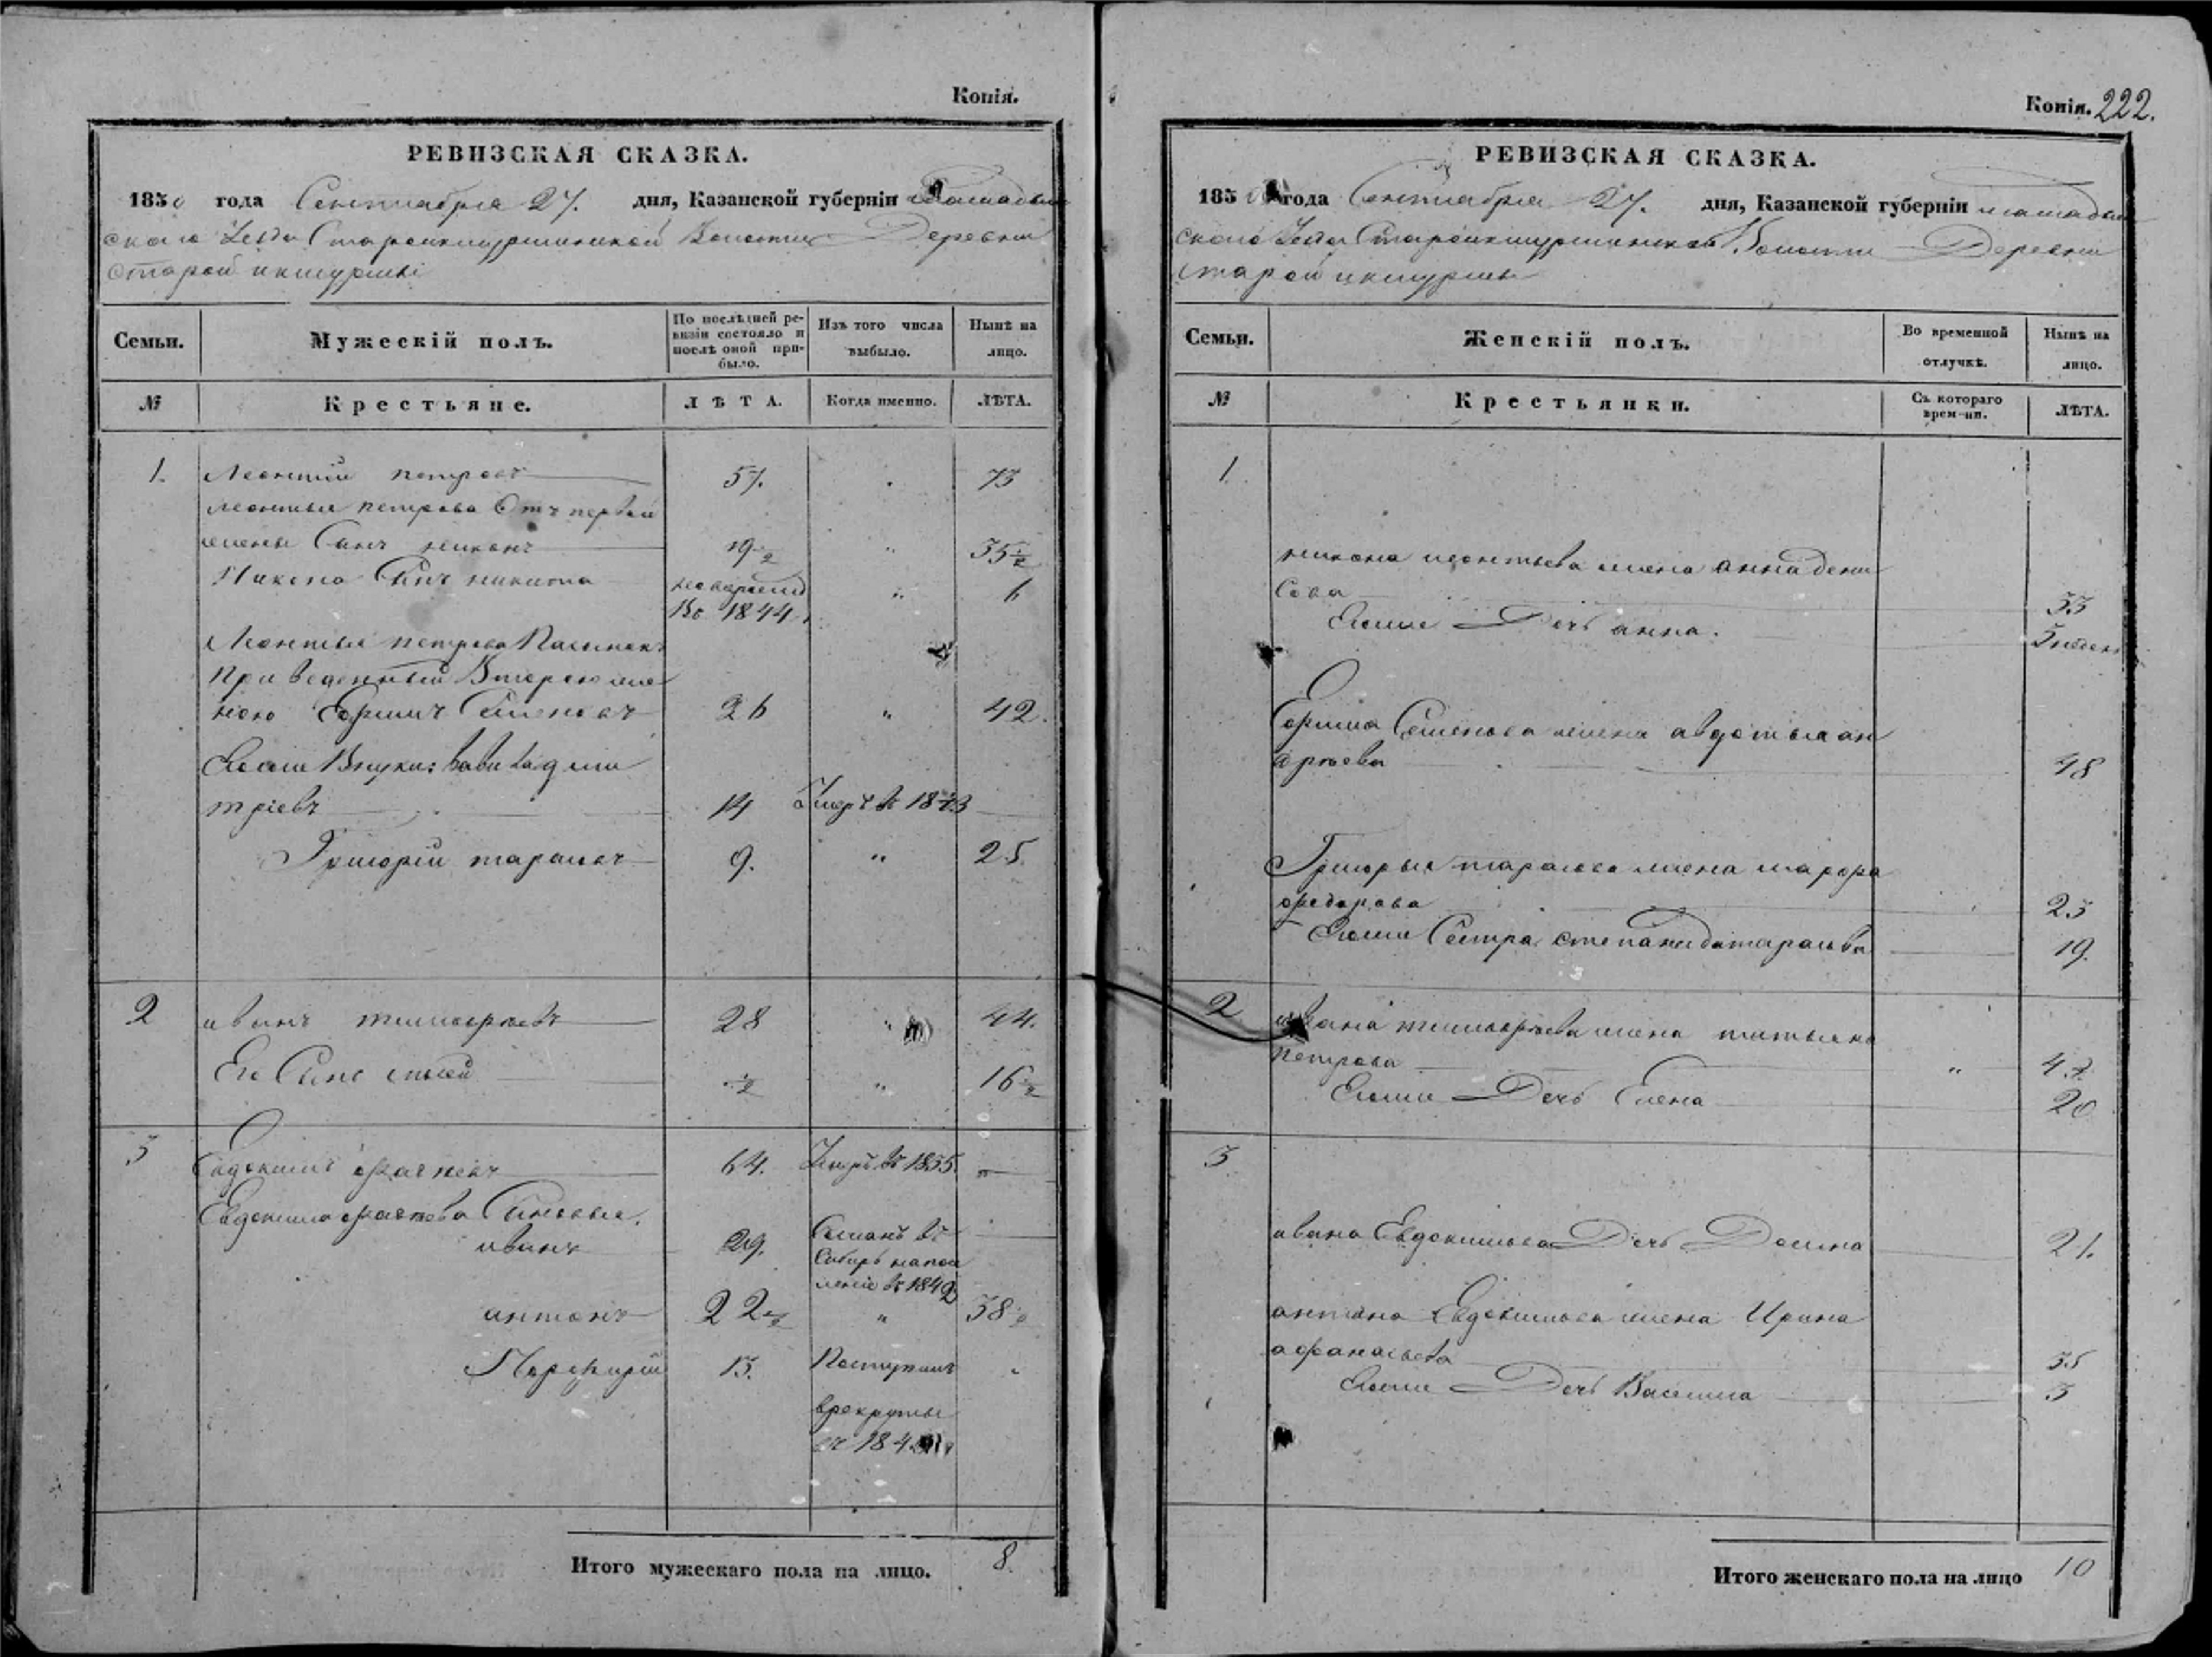 Копія.
РЕВИЗСКАЯ СКАЗКА.
1850 года Сентября 27. дня, Казанской губерніи
скаго Уезда Староикшурминской Волости Деревни
Старой икшурмы
Семьи. Мужескій полъ. По послѣдней ревизіи состояло и послѣ оной прибыло. Изъ того числа выбыло. Нынѣ на лицо.
№ Крестьяне. ЛѢТА. Когда именно. ЛѢТА.
1. Леонтий петровъ 57. 73
леонтья петрова Отъ первой
жены Сынъ никонъ 19½ " 35½
Никона Сынъ никита новорожд " 6
Въ 1844
Леонтья петрова Пасынокъ
Приведенный Второю же
ною Ефимъ Семеновъ 26 " 42.
Егоже Внуки: вавила дми
тріевъ 14 Умеръ въ 1843
Григорій тарасовъ 9. " 25.
2 иванъ тимофѣевъ 28 " 44.
Ег Сынъ ½ " 16½
3 Евдокимъ 64. Умръ въ 1835.
Евдокима Сыновья.
иванъ 29. Сосланъ въ
Сибирь на посе
леніе въ 1842
антонъ 22½ " 38½
Порфирій 13. Поступилъ
врекруты
въ 184
Итого мужескаго пола на лицо. 8.
Копія. 222.
РЕВИЗСКАЯ СКАЗКА.
185 года Сентября 27. дня, Казанской губерніи
скаго Уезда Староикшурминской Волости Деревни
Старой икшурмы
Семьи. Женскій полъ. Во временной отлучкѣ. Нынѣ на лицо.
№ Крестьянки. Съ котораго времени. ЛѢТА.
1
никона леонтьева жена анна дени
сова 33
Егоже Дочь анна. 3 недел
Ефима Семенова жена авдотья ан
дрѣева 48
Григорья тарасова жена марфа
федорова 23
Егоже Сестра степанида тарасова 19.
2 ивана тимофѣева жена татьяна
петрова " 42
Егоже Дочь Елена 20
3
ивана Евдокимова Дочь Домна 21.
антона Евдокимова жена Ирина
афанасьева 35
Егоже Дочь Василиса 3
Итого женскаго пола на лицо 10